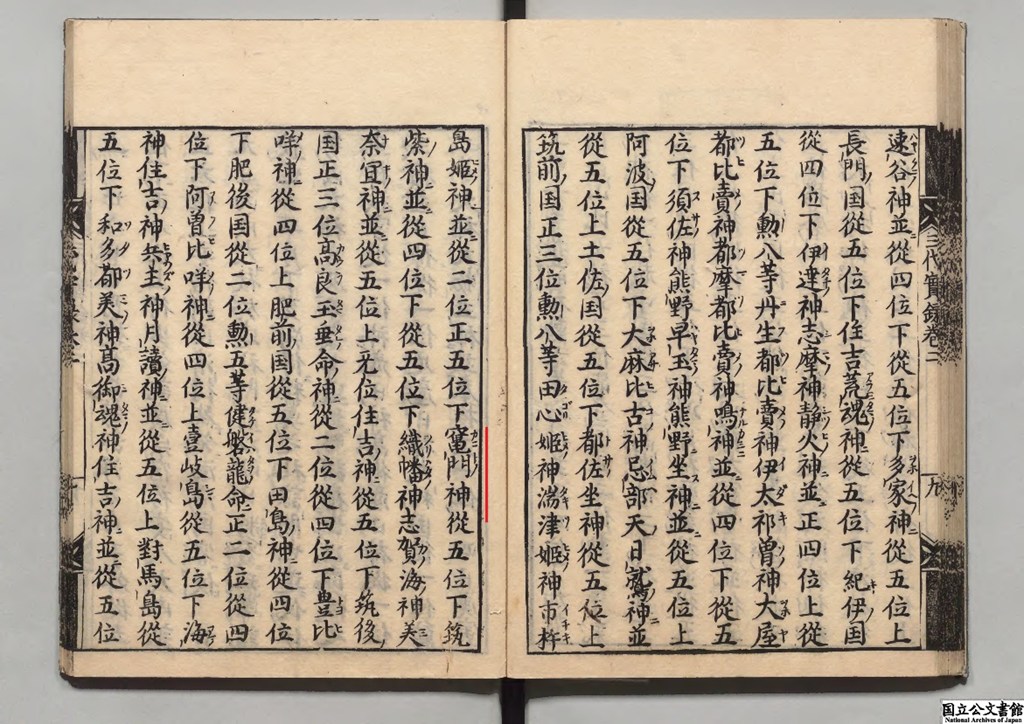 速谷神並從四位下從五位下多家神從五位上
長門国從五位下住吉荒魂神從五位下紀伊国
從四位下伊達神志摩神静火神並正四位上從
五位下勲八等丹生都比賣神伊太祁曽神大屋
都比賣神都摩都比賣神鳴神並從四位下從五
位下須佐神熊野早玉神熊野坐神並從五位上
阿波国從五位下大麻比古神忌部天日鷲神並
從五位上土佐国從五位下都佐坐神從五位上
筑前国正三位勲八等田心姫神湍津姫神市杵
三代實録巻二
九
島姫神並從二位正五位下竃門神從五位下筑
紫神並從四位下從五位下織幡神志賀海神美
奈宜神並從五位上无位住吉神從五位下筑後
国正三位高良玉垂命神從二位從四位下豊比
咩神從四位上肥前国從五位下田島神從四位
下肥後国從二位勲五等健磐龍命正二位從四
位下阿曽比咩神從四位上壹岐島從五位下海
神住吉神兵主神月讀神並從五位上對馬島從
五位下和多都美神高御魂神住吉神並從五位
国立公文書館
National Archives of Japan